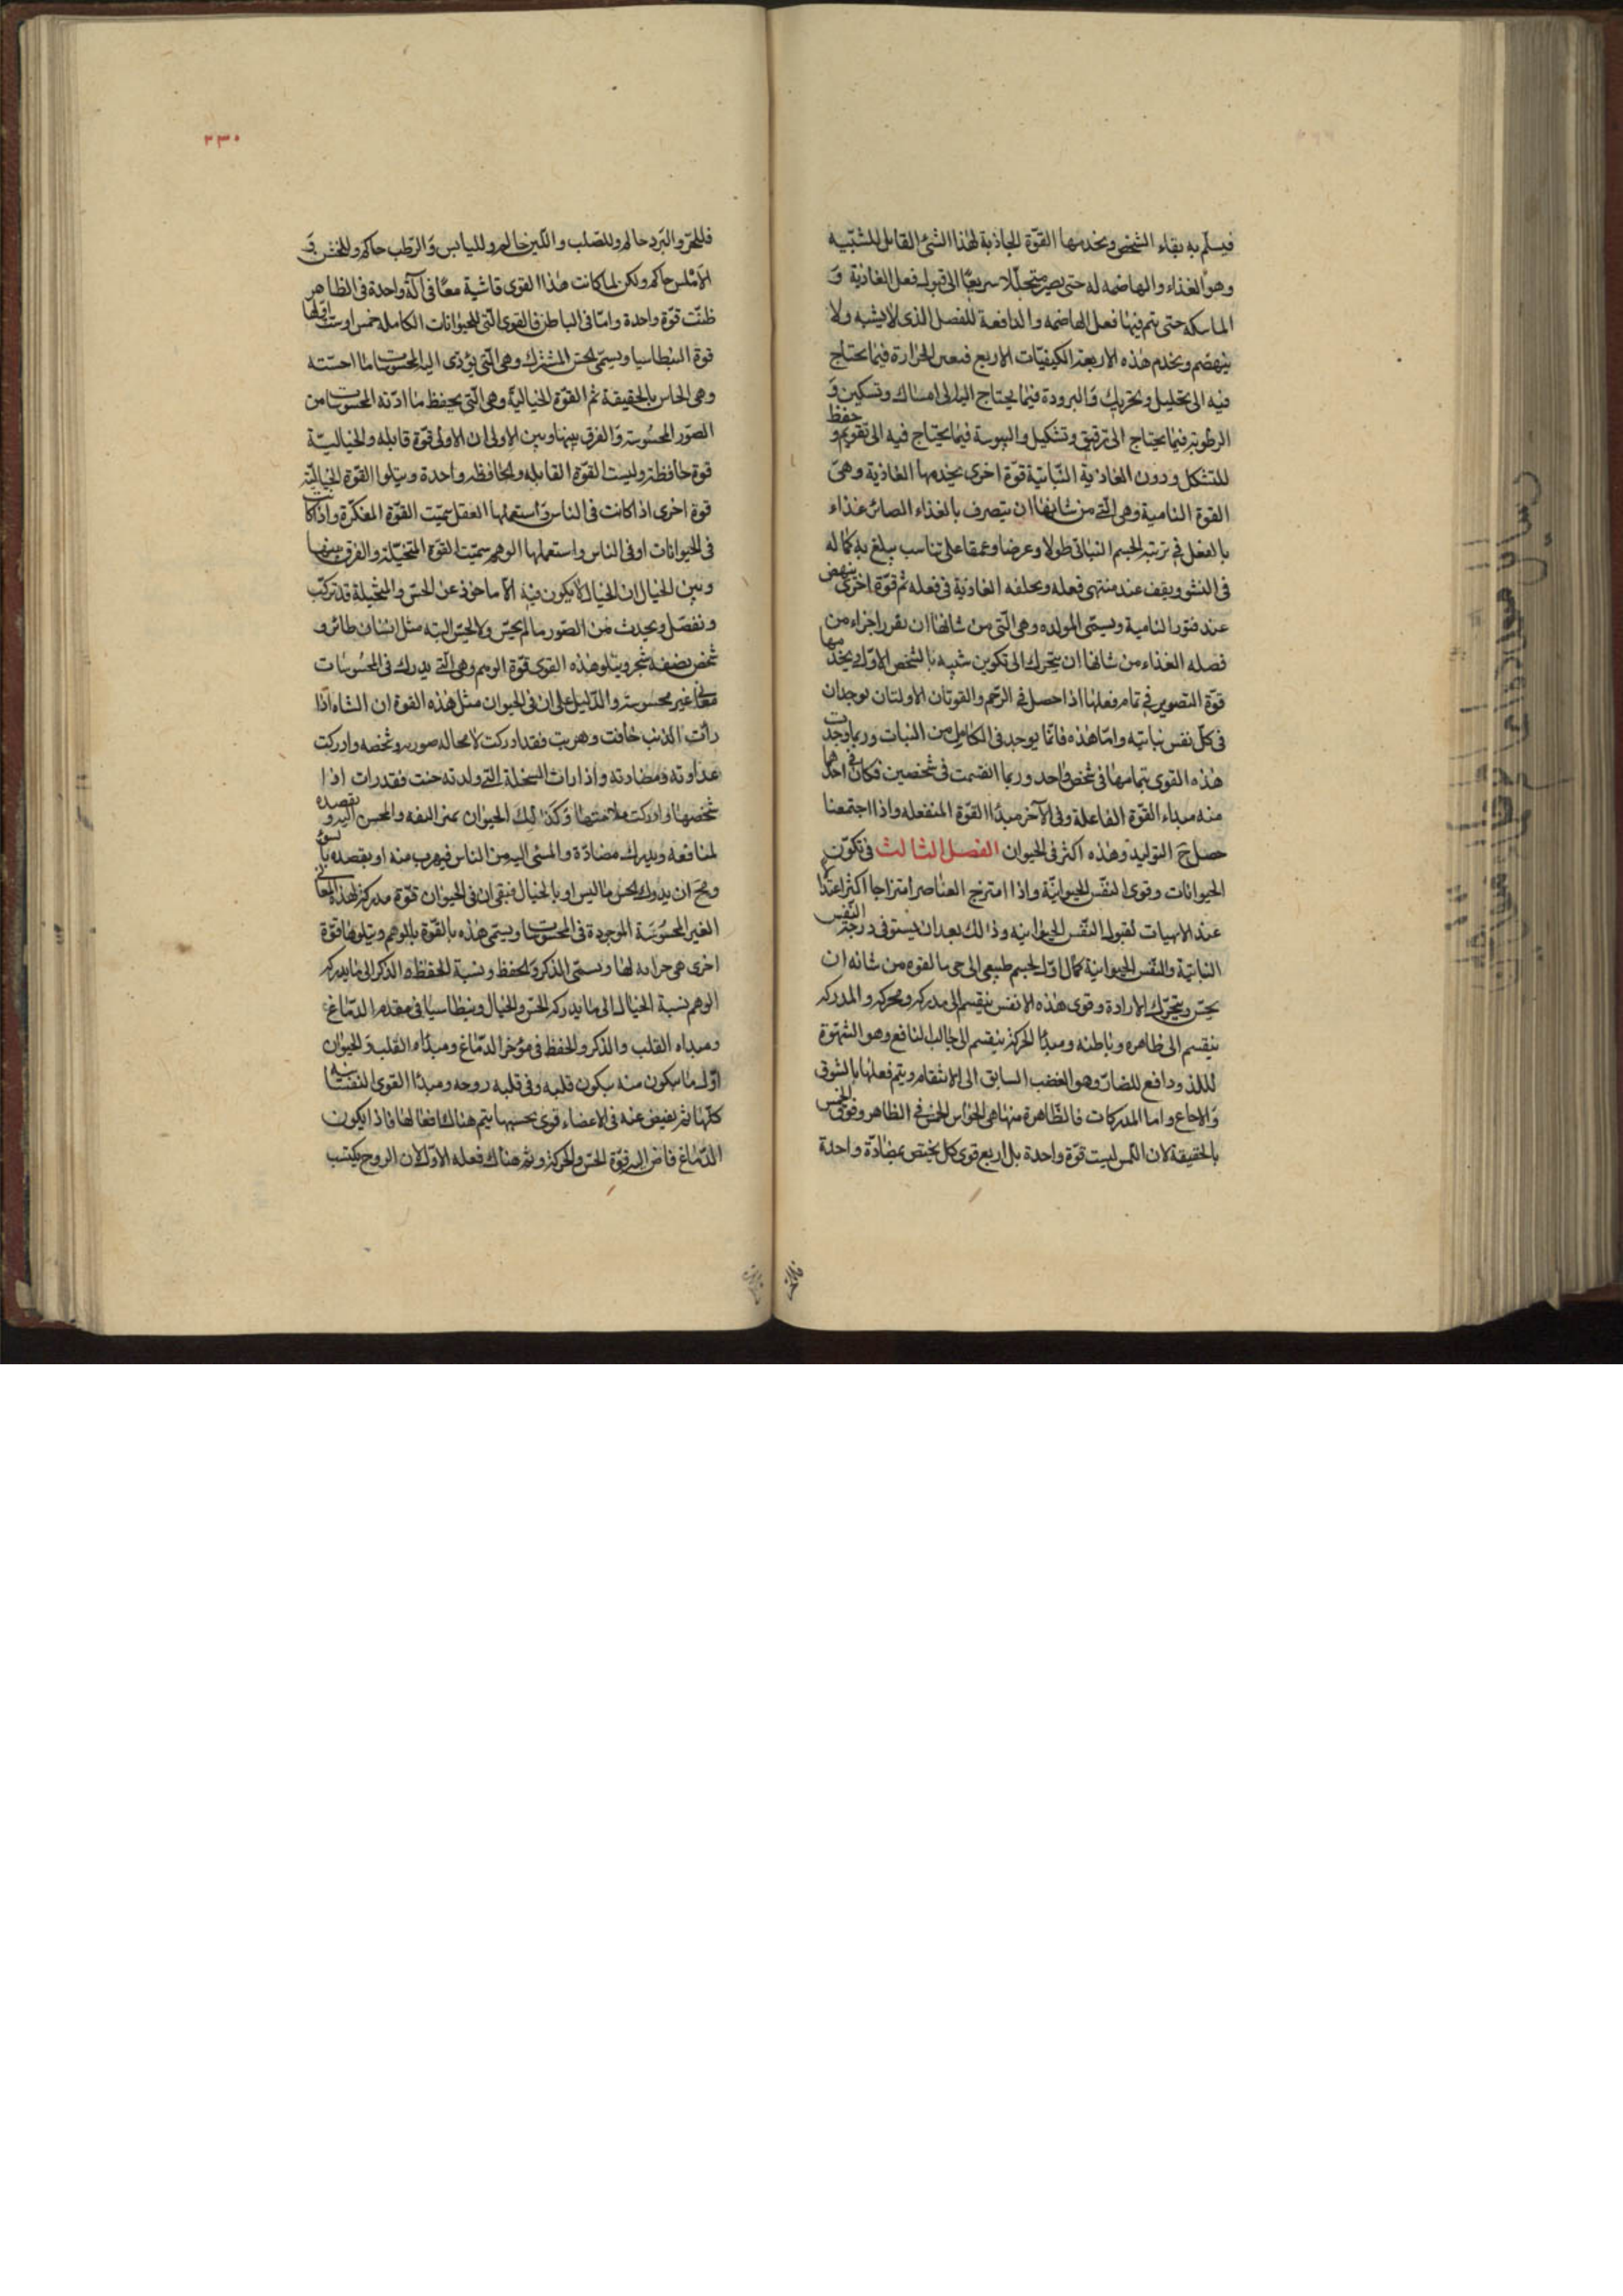 فيسلم به بقاء الشخص ويخدمها القوة الجاذبة لهذا الشئ القابل للتشبيه
وهو الغذاء والهاضمه له حتى يصير متحللا سريعا الى قبول فعل الغاذية و
الماسكه حتى يتم فيها فعل الهاضمه والدافعة للفصل الذى لا يشبه ولا
ينهضم ويخدم هذه الاربعة الكيفيّات الاربع فبعض الحرارة فيما يحتاج
فيه الى تحليل وتحريك والبرودة فيما يحتاج اليه الى امساك وتسكين و
الرطوبة فيما يحتاج الى ترقيق وتشكيل واليبوسة فيما يحتاج فيه الى تقويم و حفظ
للتشكل ودون الغاذية النّباتيّة قوّة اخرى يخدمها الغاذية وهى
القوة النامية وهى التى من شانها ان يتصرف بالغذاء الصائر غذاء
بالفعل فى تربية الجسم النباتى طولا وعرضا وعمقا على تناسب يبلغ به كماله
فى النشو ويقف عند منتهى فعله ويخلفه الغاذية فى فعله ثم قوّة اخرى ينهض
عند فتور النامية ويسمّى المولده وهى الّتى من شانها ان يفرز اجزاء من
فصله الغذاء من شانها ان يتحرك الى تكوين شبيه بالشخص الاوّل ويخدمها
قوّة التصوير فى تمام فعلها اذا حصل فى الرّحم والقوتان الاولتان توجدان
فى كلّ نفس نباتيه وامّا هذه فانّما يوجد فى الكامل من النبات وربما وجدت
هذه القوى بتمامها فى شخص واحد وربما انقسمت فى شخصين فكان فى احدهما
منه مبداء القوّة الفاعلة وفى الآخر مبداء القوّة المنفعله واذا اجتمعنا
حصل ح التوليد وهذه اكثر فى الحيوان الفصل الثالث فى تكوّن
الحيوانات وقوى النفس الحيوانيّة واذا امتزج العناصر امتزاجا اكثر اعتدالا
عند الالهيات لقبول النفس الحيوانيه وذلك بعد ان يستوفى درجة النّفس
النباتيّة والنفس الحيوانية كمال اوّل لجسم طبيعى الى حى بالقوه من شانه ان
يحسّ ويتحرّك بالارادة وقوى هذه الانفس ينقسم الى مدركه ومحركه والمدركه
ينقسم الى ظاهره وباطنه ومبدأ الحركة ينقسم الى جالب للنافع وهو الشهوة
للذ ودافع للضارّ وهو الغضب السابق الى الانتقام ويتم فعلها بالشوق
والاجماع واما المدركات فالظّاهرة منها هى الحواس الخمس فى الظاهر وفوق الخمس
بالحقيقة لان اللمس ليست قوّة واحدة بل اربع قوى كل يختص بمضادّة واحدة
٢٣٠
فللحرّ والبرد حاكم وللصلب واللّين حاكم ولليابس والرّطب حاكم وللخشن و
الاملس حاكم ولكن لما كانت هذا القوى فاشية معًا فى آلة واحدة فى الظاهر
ظنّت قوّة واحدة وامّا فى الباطن فالقوى الّتى للحيوانات الكامله خمس او ست اوّلها
قوة البنطاسيا ويسمّى الحسّ المشترك وهى الّتى يؤدى اليه المحسوسات ما احسّته
وهى الحاس بالحقيقة ثم القوّة الخياليّة وهى الّتى يحفظ ما ادّته المحسوسات من
الصّور المحسوسة والفرق بينها وبين الاولى ان الاولى قوّة قابله والخياليّة
قوة حافظة وليست القوّة القابله والحافظه واحدة ويتلوا القوّة الخياليّة
قوة اخرى اذا كانت فى الناس واستعملها العقل سمّيت القوّة المفكّرة واذا كانت
فى الحيوانات او فى الناس واستعملها الوهم سمّيت القوّة المتخيّلة والفرق بينها
وبين الخيال ان الخيال لا يكون فيه الّا ماخوذ عن الحسّ والمتخيلة قد تركّب
وتفصّل ويحدث من الصّور ما لم يحسّ ولا يحسّ البته مثل انسان طائر و
شخص نصفه شجر ويتلو هذه القوى قوّة الوهم وهى الّتى يدرك فى المحسوسات
معانى غير محسوسة والدّليل على ان فى الحيوان مثل هذه القوة ان الشاه اذا
رأت الذئب خافت وهربت فقد ادركت لا محاله صورته وشخصه وادركت
عداوته ومضادته واذا رات السخلة التى ولدته حنت فقد رات اذا
شخصها وادركت ملائمتها وكذلك الحيوان يمنى الفه والمحسن اليه ويقصده
لمنافعه ويدرك مضادّة والمسئى اليه من الناس فيهرب منه او يقصده بالسوء
ومح ان يدرك الحس ما ليس او بالخيال فبقى ان فى الحيوان قوّة مدركة لهذه المعانى
الغير المحسوسة الموجودة فى المحسوسات ويسمى هذه بالقوّة بالوهم ويتلوها قوّة
اخرى هى خزانه لها ويسمّى الذكر والحفظ ونسبة الحفظ والذكر الى ما يدركه
الوهم نسبة الخيال الى ما يدركه الحسّ والخيال وبنطاسيا فى مقدم الدّماغ
ومبداه القلب والذكر والحفظ فى مؤخر الدّماغ ومبداه القلب والحيوان
اوّل ما يتكون منه يكون قلبه وفى قلبه روحه ومبدأ القوى النفسانيه
كلّها ثم يفيض عنه فى الاعضاء قوى بحسبها يتم هناك افعالها فاذا يكون
الدّماغ فاض اليه قوّة الحسّ والحركة وتم هناك فعله الاوّل لان الروح يكتسب